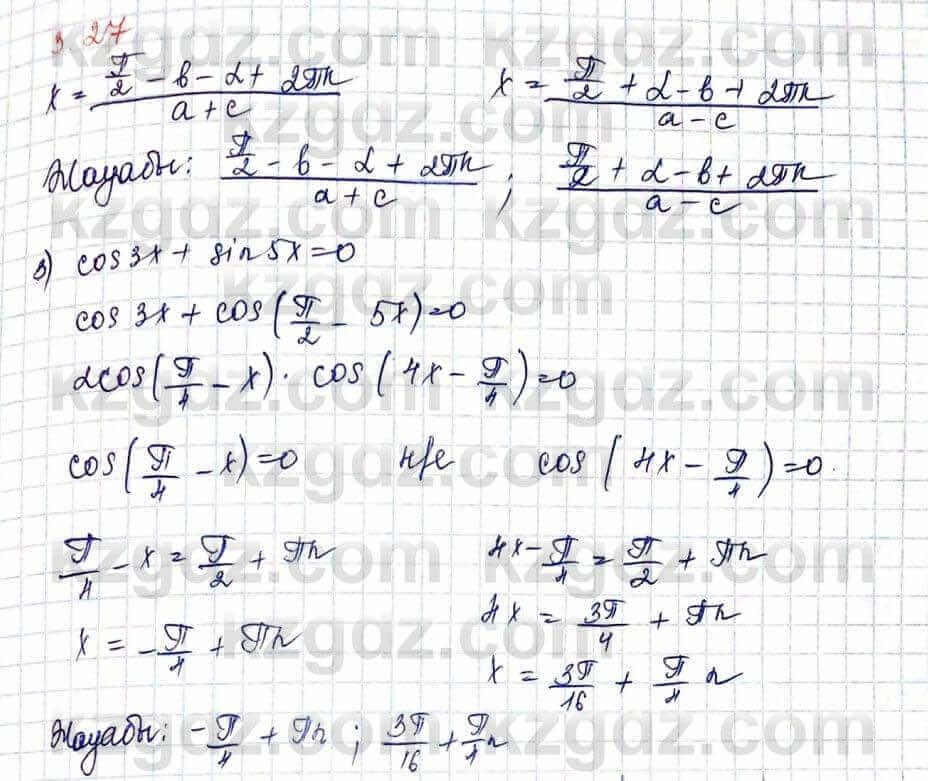 3.27
x = (π/2 - b - α + 2πn)/(a + c)   x = (π/2 + α - b + 2πn)/(a - c)
Жауабы: (π/2 - b - α + 2πn)/(a + c) ; (π/2 + α - b + 2πn)/(a - c)
3) cos 3x + sin 5x = 0
cos 3x + cos(π/2 - 5x) = 0
2cos(π/4 - x) · cos(4x - π/4) = 0
cos(π/4 - x) = 0   н/е   cos(4x - π/4) = 0.
π/4 - x = π/2 + πn   4x - π/4 = π/2 + πn
4x = 3π/4 + πn
x = -π/4 + πn   x = 3π/16 + π/4 n
Жауабы: -π/4 + πn ; 3π/16 + π/4 n
kzgdz.com